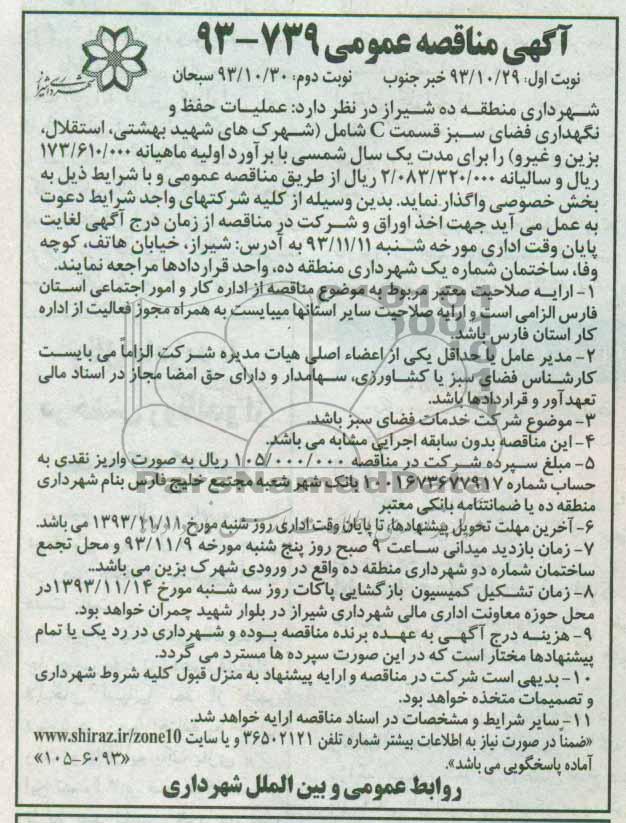 آگهی مناقصه عمومی ۷۳۹-۹۳
نوبت اول: ۹۳/۱۰/۲۹ خبر جنوب نوبت دوم: ۹۳/۱۰/۳۰ سبحان
شهرداری شیراز
شهرداری منطقه ده شیراز در نظر دارد: عملیات حفظ و
نگهداری فضای سبز قسمت C شامل (شهرک های شهید بهشتی، استقلال،
بزین و غیرو) را برای مدت یک سال شمسی با برآورد اولیه ماهیانه ۱۷۳/۶۱۰/۰۰۰
ریال و سالیانه ۲/۰۸۳/۳۲۰/۰۰۰ ریال از طریق مناقصه عمومی و با شرایط ذیل به
بخش خصوصی واگذار نماید. بدین وسیله از کلیه شرکتهای واجد شرایط دعوت
به عمل می آید جهت اخذ اوراق و شرکت در مناقصه از زمان درج آگهی لغایت
پایان وقت اداری مورخه شنبه ۹۳/۱۱/۱۱ به آدرس: شیراز، خیابان هاتف، کوچه
وفا، ساختمان شماره یک شهرداری منطقه ده، واحد قراردادها مراجعه نمایند.
۱- ارایه صلاحیت معتبر مربوط به موضوع مناقصه از اداره کار و امور اجتماعی استان
فارس الزامی است و ارایه صلاحیت سایر استانها میبایست به همراه مجوز فعالیت از اداره
کار استان فارس باشد.
۲- مدیر عامل یا حداقل یکی از اعضاء اصلی هیات مدیره شرکت الزاماً می بایست
کارشناس فضای سبز یا کشاورزی، سهامدار و دارای حق امضا مجاز در اسناد مالی
تعهدآور و قراردادها باشد.
۳- موضوع شرکت خدمات فضای سبز باشد.
۴- این مناقصه بدون سابقه اجرایی مشابه می باشد.
۵- مبلغ سپرده شرکت در مناقصه ۱۰۵/۰۰۰/۰۰۰ ریال به صورت واریز نقدی به
حساب شماره ۱۰۰۱۶۷۳۶۷۷۹۱۷ بانک شهر شعبه مجتمع خلیج فارس بنام شهرداری
منطقه ده یا ضمانتنامه بانکی معتبر
ParsNamadData
۶- آخرین مهلت تحویل پیشنهادها، تا پایان وقت اداری روز شنبه مورخ ۱۳۹۳/۱۱/۱۱ می باشد.
۷- زمان بازدید میدانی ساعت ۹ صبح روز پنج شنبه مورخه ۹۳/۱۱/۹ و محل تجمع
ساختمان شماره دو شهرداری منطقه ده واقع در ورودی شهرک بزین می باشد..
۸- زمان تشکیل کمیسیون بازگشایی پاکات روز سه شنبه مورخ ۱۳۹۳/۱۱/۱۴در
محل حوزه معاونت اداری مالی شهرداری شیراز در بلوار شهید چمران خواهد بود.
۹- هزینه درج آگهی به عهده برنده مناقصه بوده و شهرداری در رد یک یا تمام
پیشنهادها مختار است که در این صورت سپرده ها مسترد می گردد.
۱۰- بدیهی است شرکت در مناقصه و ارایه پیشنهاد به منزل قبول کلیه شروط شهرداری
و تصمیمات متخذه خواهد بود.
۱۱- سایر شرایط و مشخصات در اسناد مناقصه ارایه خواهد شد.
«ضمناً در صورت نیاز به اطلاعات بیشتر شماره تلفن ۳۶۵۰۲۱۲۱ و یا سایت www.shiraz.ir/zone10
آماده پاسخگویی می باشد». «۱۰۵-۶۰۹۳»
روابط عمومی و بین الملل شهرداری